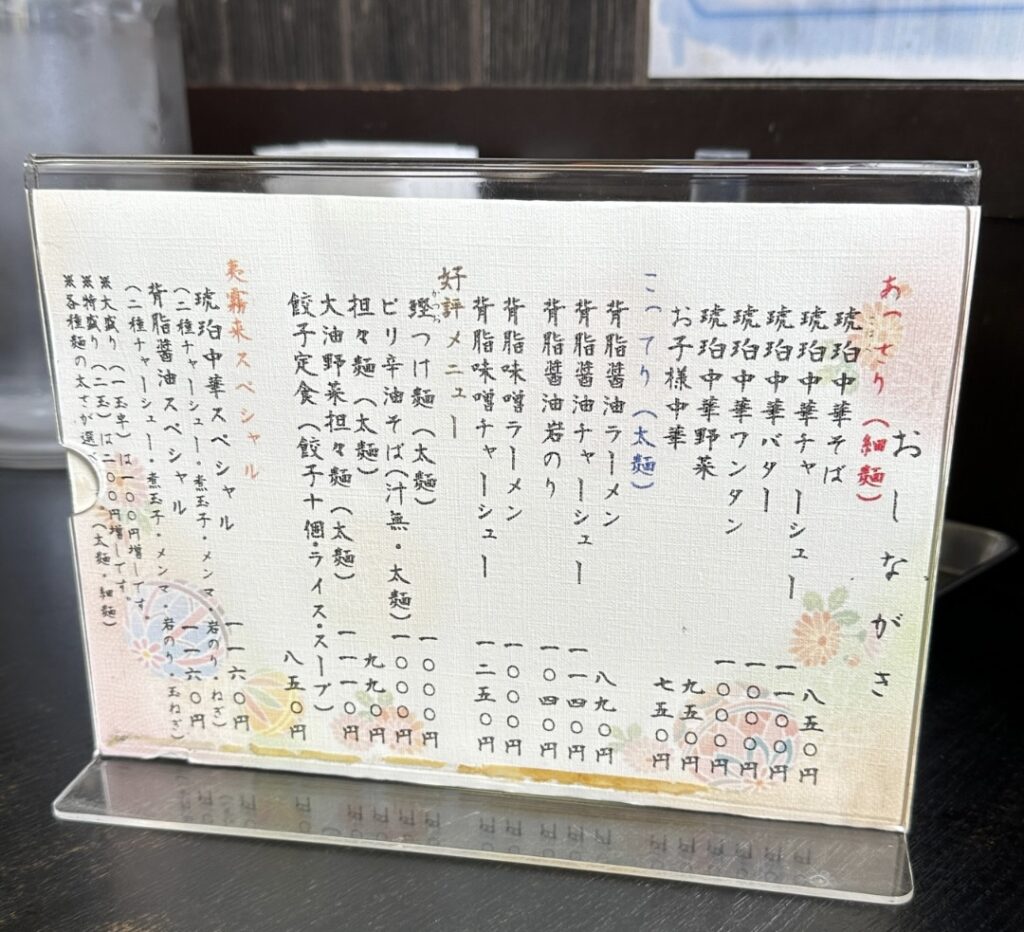 おしながき
あっさり（細麺）
琥珀中華そば 八五〇円
琥珀中華チャーシュー 一一〇〇円
琥珀中華バター 一〇〇〇円
琥珀中華ワンタン 一〇〇〇円
琥珀中華野菜 九五〇円
お子様中華 七五〇円
こってり（太麺）
背脂醬油ラーメン 八九〇円
背脂醬油チャーシュー 一一四〇円
背脂醬油岩のり 一〇四〇円
背脂味噌ラーメン 一〇〇〇円
背脂味噌チャーシュー 一二五〇円
好評メニュー
鰹つけ麺（太麺） 一〇〇〇円
ピリ辛油そば（汁無・太麺） 一〇〇〇円
担々麺（太麺） 九九〇円
大油野菜担々麺（太麺） 一一一〇円
餃子定食（餃子十個・ライス・スープ） 八五〇円
夷霧来スペシャル
琥珀中華スペシャル 一一六〇円
（二種チャーシュー・煮玉子・メンマ・岩のり・ねぎ）
背脂醬油スペシャル 一一六〇円
（二種チャーシュー・煮玉子・メンマ・岩のり・玉ねぎ）
※大盛り（一玉半）は一〇〇円増しです。
※特盛り（二玉）は二〇〇円増しです。
※各種麺の太さが選べ（太麺・細麺）